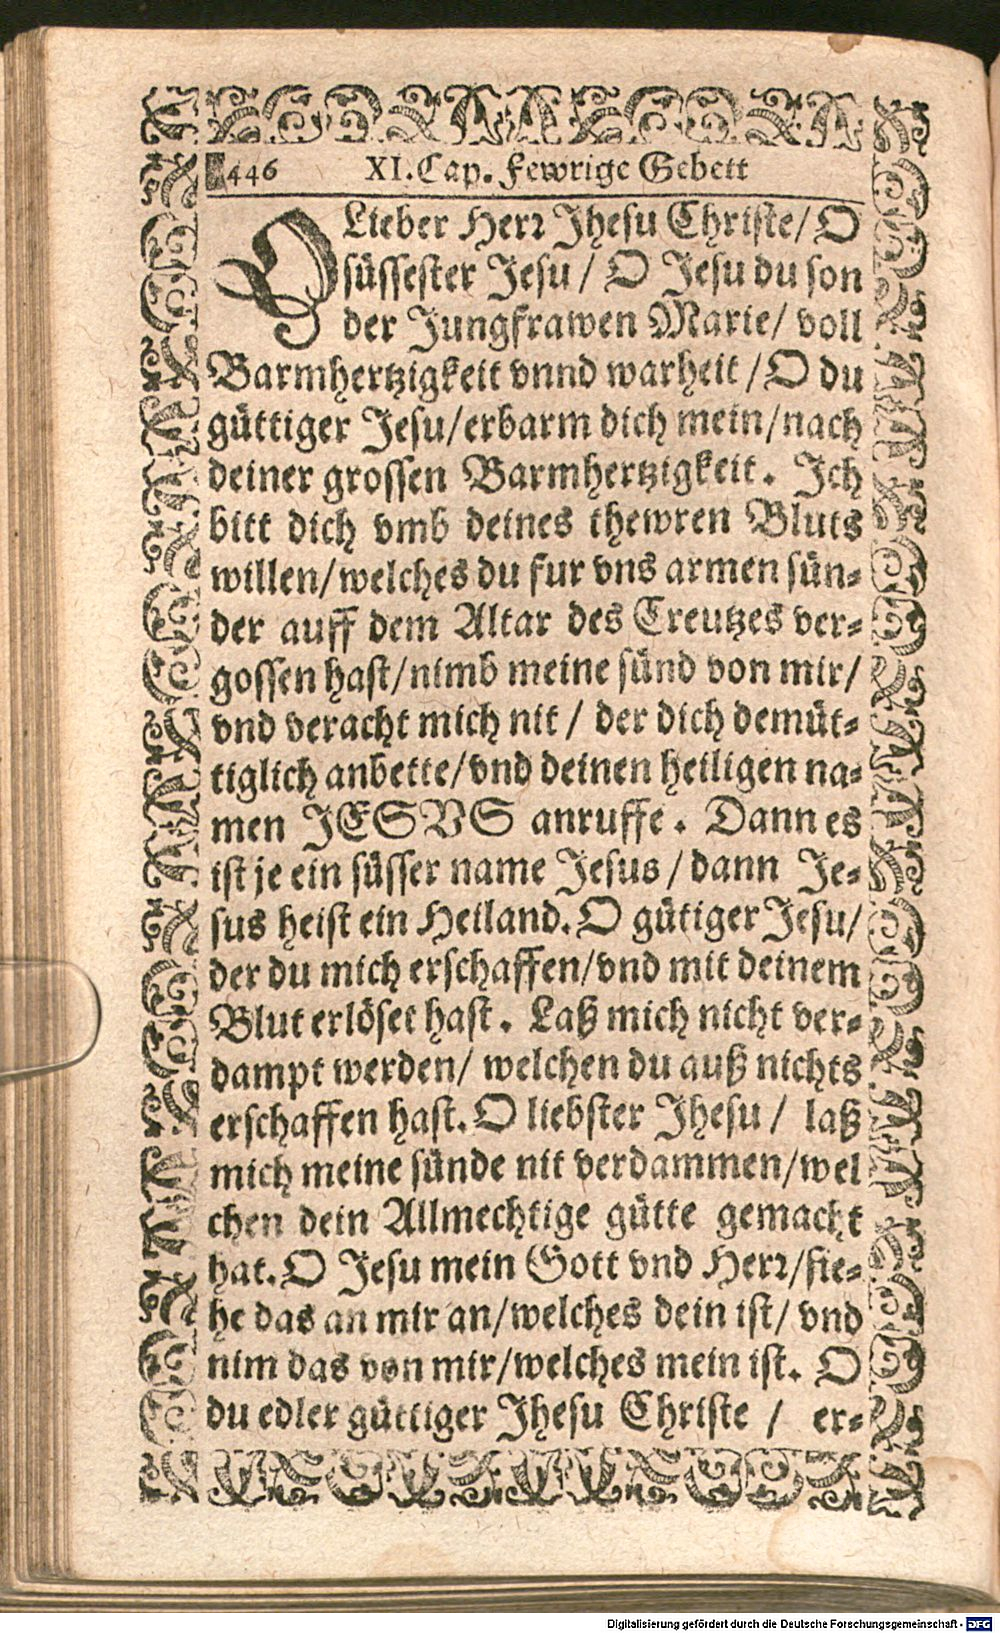 446 XI. Cap. Fewrige Gebett
O Lieber Herr Jhesu Christe/ O
süssester Jesu / O Jesu du son
der Jungfrawen Marie/ voll
Barmhertzigkeit vnnd warheit /O du
güttiger Jesu/erbarm dich mein/nach
deiner grossen Barmhertzigkeit. Ich
bitt dich vmb deines thewren Bluts
willen/welches du fur vns armen sün-
der auff dem Altar des Creutzes ver-
gossen hast/nimb meine sünd von mir/
vnd veracht mich nit / der dich demüt-
tiglich anbette/vnd deinen heiligen na-
men JESVS anruffe. Dann es
ist je ein süsser name Jesus / dann Je-
sus heist ein Heiland. O gütiger Jesu/
der du mich erschaffen/vnd mit deinem
Blut erlöset hast. Laß mich nicht ver-
dampt werden/ welchen du auß nichts
erschaffen hast. O liebster Jhesu / laß
mich meine sünde nit verdammen/wel
chen dein Allmechtige gütte gemacht
hat. O Jesu mein Gott vnd Herr/sie-
he das an mir an/welches dein ist/ vnd
nim das von mir/welches mein ist. O
du edler güttiger Jhesu Christe / er-
Digitalisierung gefördert durch die Deutsche Forschungsgemeinschaft - DFG